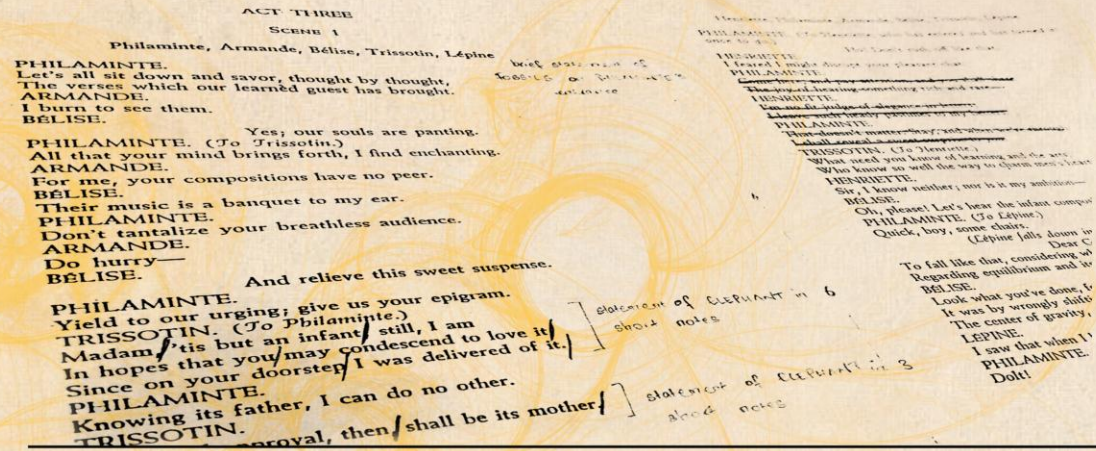 ACT THREE
SCENE 1
Philaminte, Armande, Bélise, Trissotin, Lépine
PHILAMINTE.
Let's all sit down and savor, thought by thought,
The verses which our learned guest has brought.
ARMANDE.
I burn to see them.
BÉLISE.
Yes; our souls are panting.
PHILAMINTE. (To Trissotin.)
All that your mind brings forth, I find enchanting.
ARMANDE.
For me, your compositions have no peer.
BÉLISE.
Their music is a banquet to my ear.
PHILAMINTE.
Don't tantalize your breathless audience.
ARMANDE.
Do hurry—
BÉLISE.
And relieve this sweet suspense.
PHILAMINTE.
Yield to our urging; give us your epigram.
TRISSOTIN. (To Philaminte.)
Madam, 'tis but an infant still, I am
In hopes that you may condescend to love it
Since on your doorstep I was delivered of it.
PHILAMINTE.
Knowing its father, I can do no other.
TRISSOTIN.
then, shall be its mother.
brief statement of
statement of ELEPHANT in 6
short notes
statement of ELEPHANT in 3
short notes
HENRIETTE.
I feared I might disrupt your pleasure
PHILAMINTE.
HENRIETTE.
PHILAMINTE.
TRISSOTIN. (To Henriette.)
What need you know of learning and the arts
Who know so well the way to charm men's
HENRIETTE.
Sir, I know neither; nor is it my ambition—
BÉLISE.
Oh, please! Let's hear the infant
PHILAMINTE. (To Lépine.)
Quick, boy, some chairs.
(Lépine falls down
Dear
To fall like that, considering
Regarding equilibrium and
BÉLISE.
Look what you've done,
It was by wrongly
The center of gravity,
LÉPINE.
I saw that when I
PHILAMINTE.
Dolt!